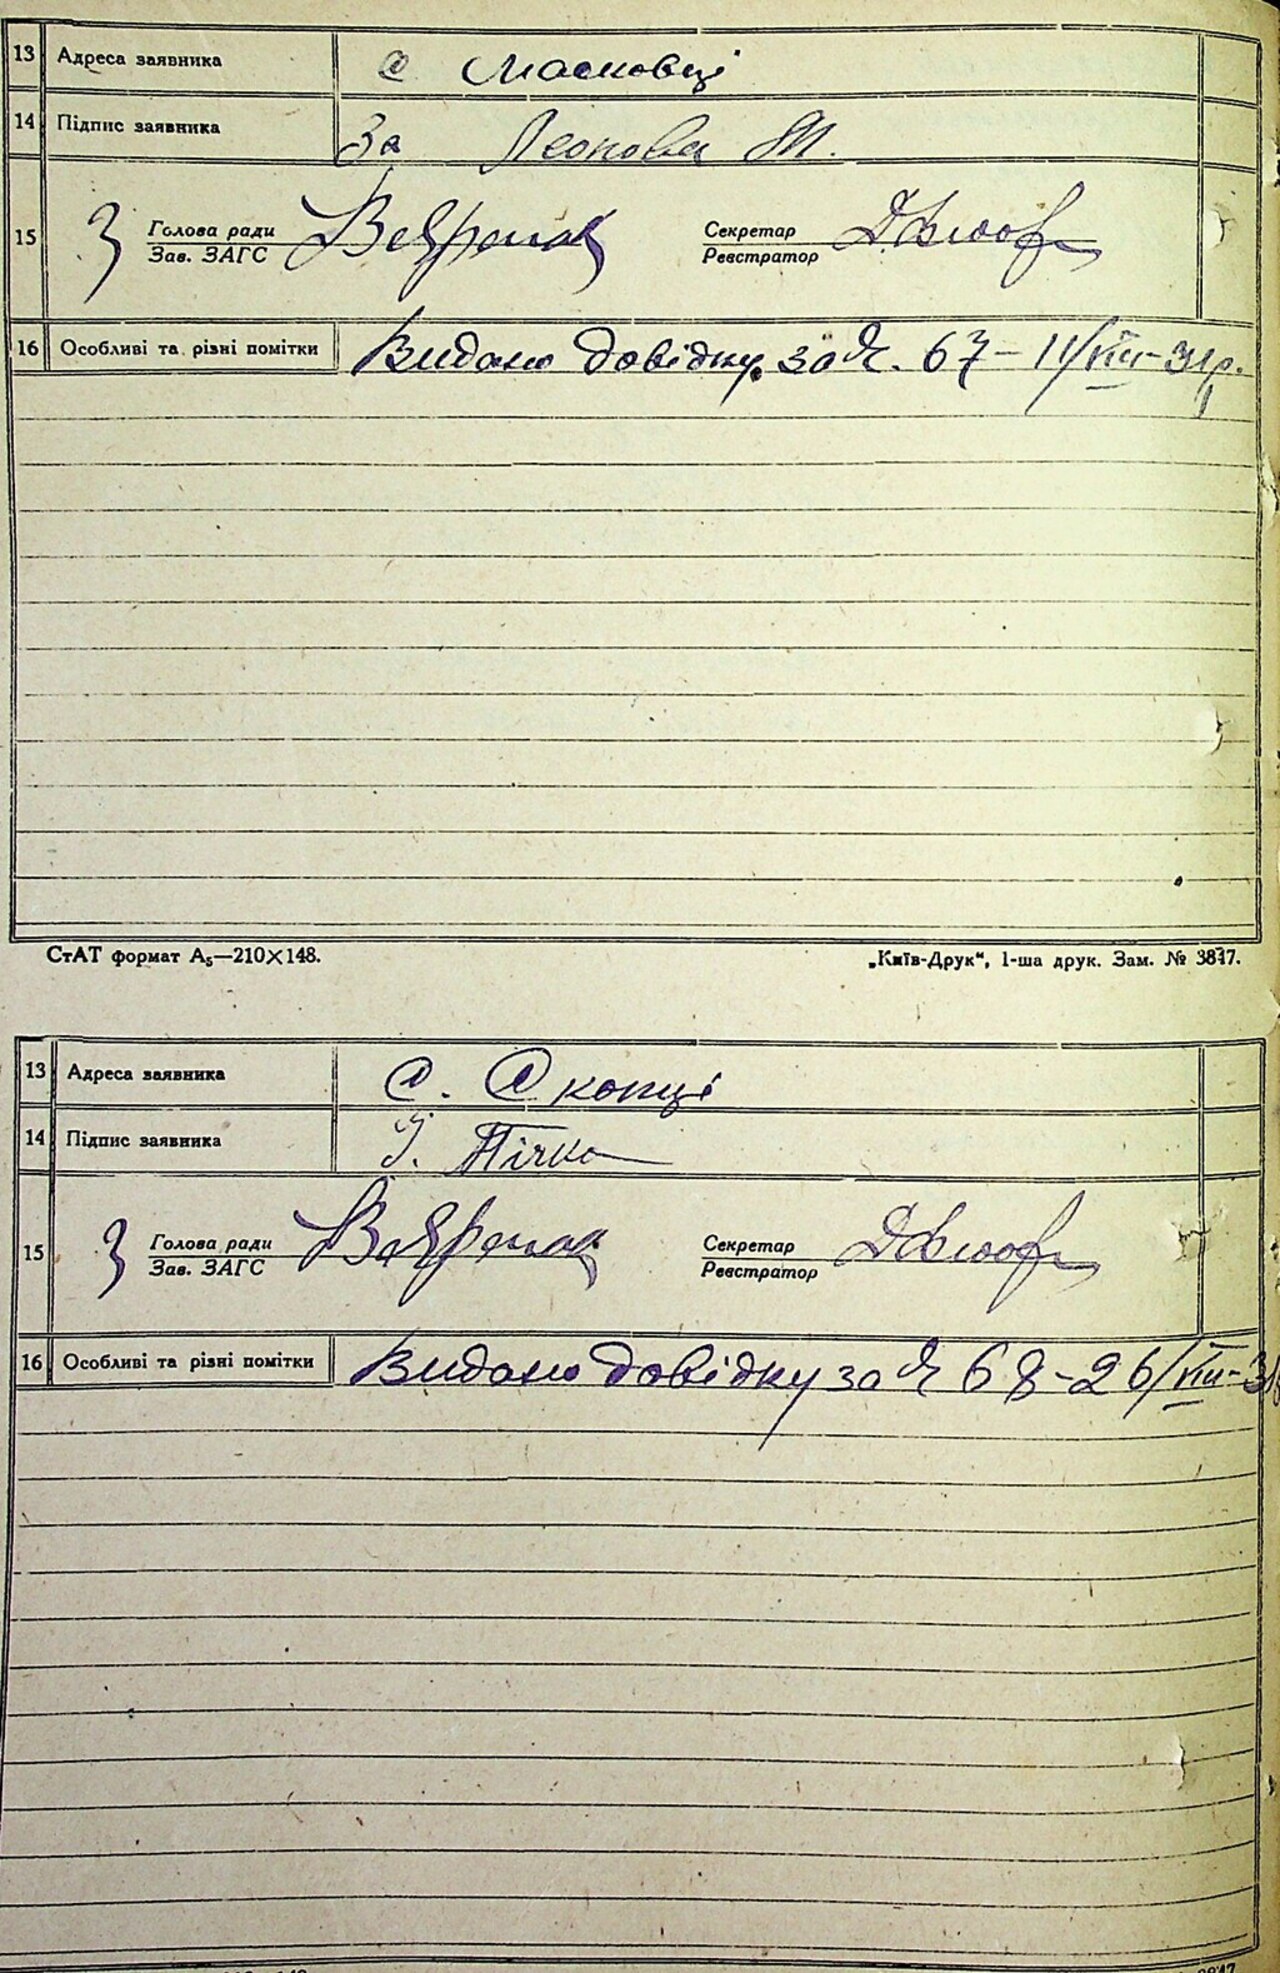 13 Адреса заявника с Масковці
14 Підпис заявника За Леонова М.
15 З Голова ради Секретар
Зав. ЗАГС Реєстратор
16 Особливі та різні помітки Видано довідку за № 67 – 11/VIII – 31р.
СтАТ формат А₅—210×148. „Київ-Друк“, 1-ша друк. Зам. № 3847.
13 Адреса заявника с. Скопці
14 Підпис заявника І. Пічка
15 З Голова ради Секретар
Зав. ЗАГС Реєстратор
16 Особливі та різні помітки Видано довідку за № 68 – 26/VIII – 31